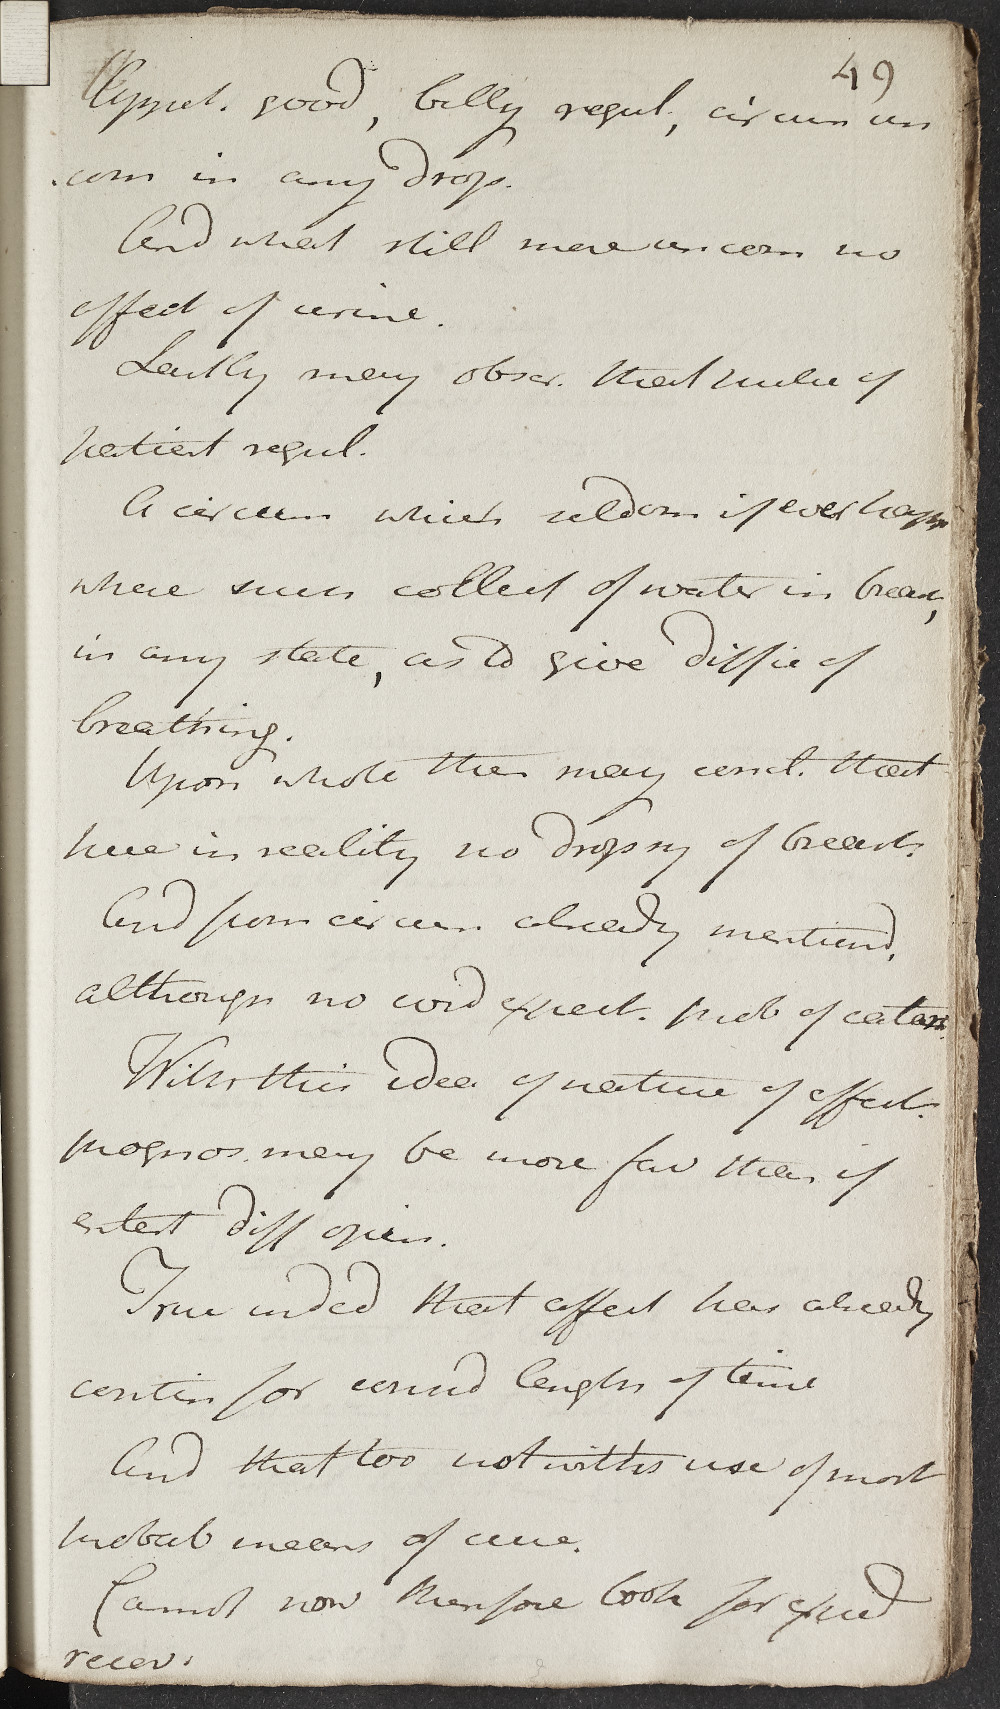 49
Appet. good, belly regul, circum un
com in any drop.
And what still more uncom no
effect of urine.
Lastly may obser. that pulse of
patient regul.
A circum which seldom if ever happ
where such collect of water in breast,
in any state, as to give diffic of
breathing.
Upon whole then may concl. that
here in reality no dropsy of breast.
And from circum already mentiond,
although no cons expect. prob of catarr.
With this idea of nature of affect.
prognos. may be more fav than if
entert diff opin.
True indeed that affect has already
contin for consid length of time
And that too notwiths use of most
probab means of cure.
Cannot now therefore look for speed
recov.